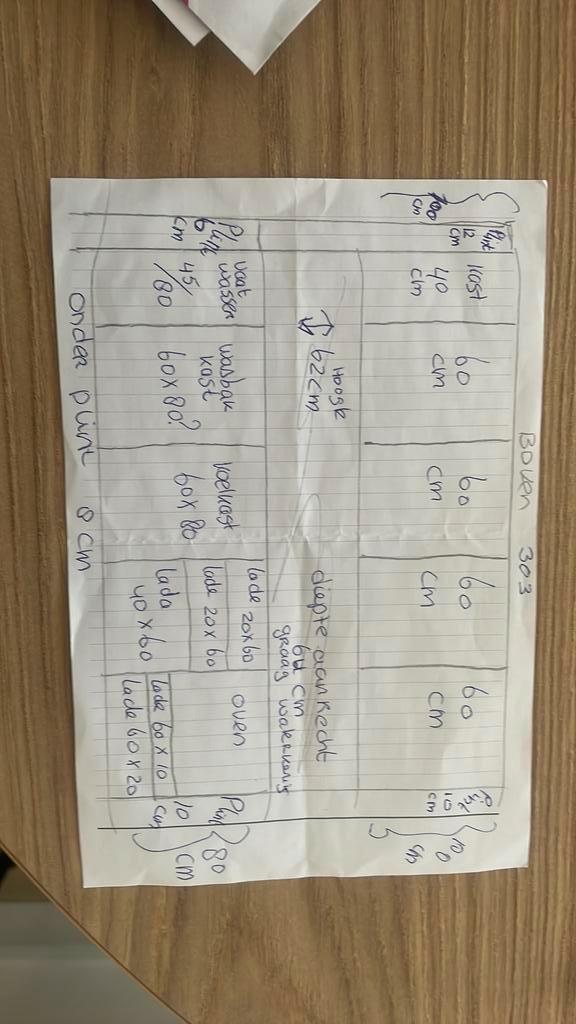 Boven 303
Plint
12
cm
kast
40
cm
60
cm
60
cm
60
cm
60
cm
10
cm
100
cm
100
cm
Hoogte
62 cm
diepte aanrecht
62 cm
graag
Plint
6
cm
vaat
wasser
45/
80
wasbak
kast
60 x 80?
koelkast
60 x 80
lade 20 x 60
lade 20 x 60
lada
40 x 60
oven
lade 60 x 10
lade 60 x 20
Plint
10
cm
80
cm
onder plint 8 cm